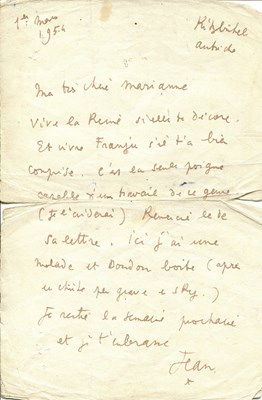 1er mars
1954
Kitzbühel
autriche
Ma très chère Marianne
Vive la Reine si elle te décore.
Et vive Franju s'il t'a bien
comprise. C'est la seule poigne
capable d'un travail de ce genre
(Je l'aiderai) Remercie le de
sa lettre. Ici j'ai une
malade et Doudou boite (après
une chute peu grave en sky.)
Je rentre la semaine prochaine
et je t'embrasse
Jean